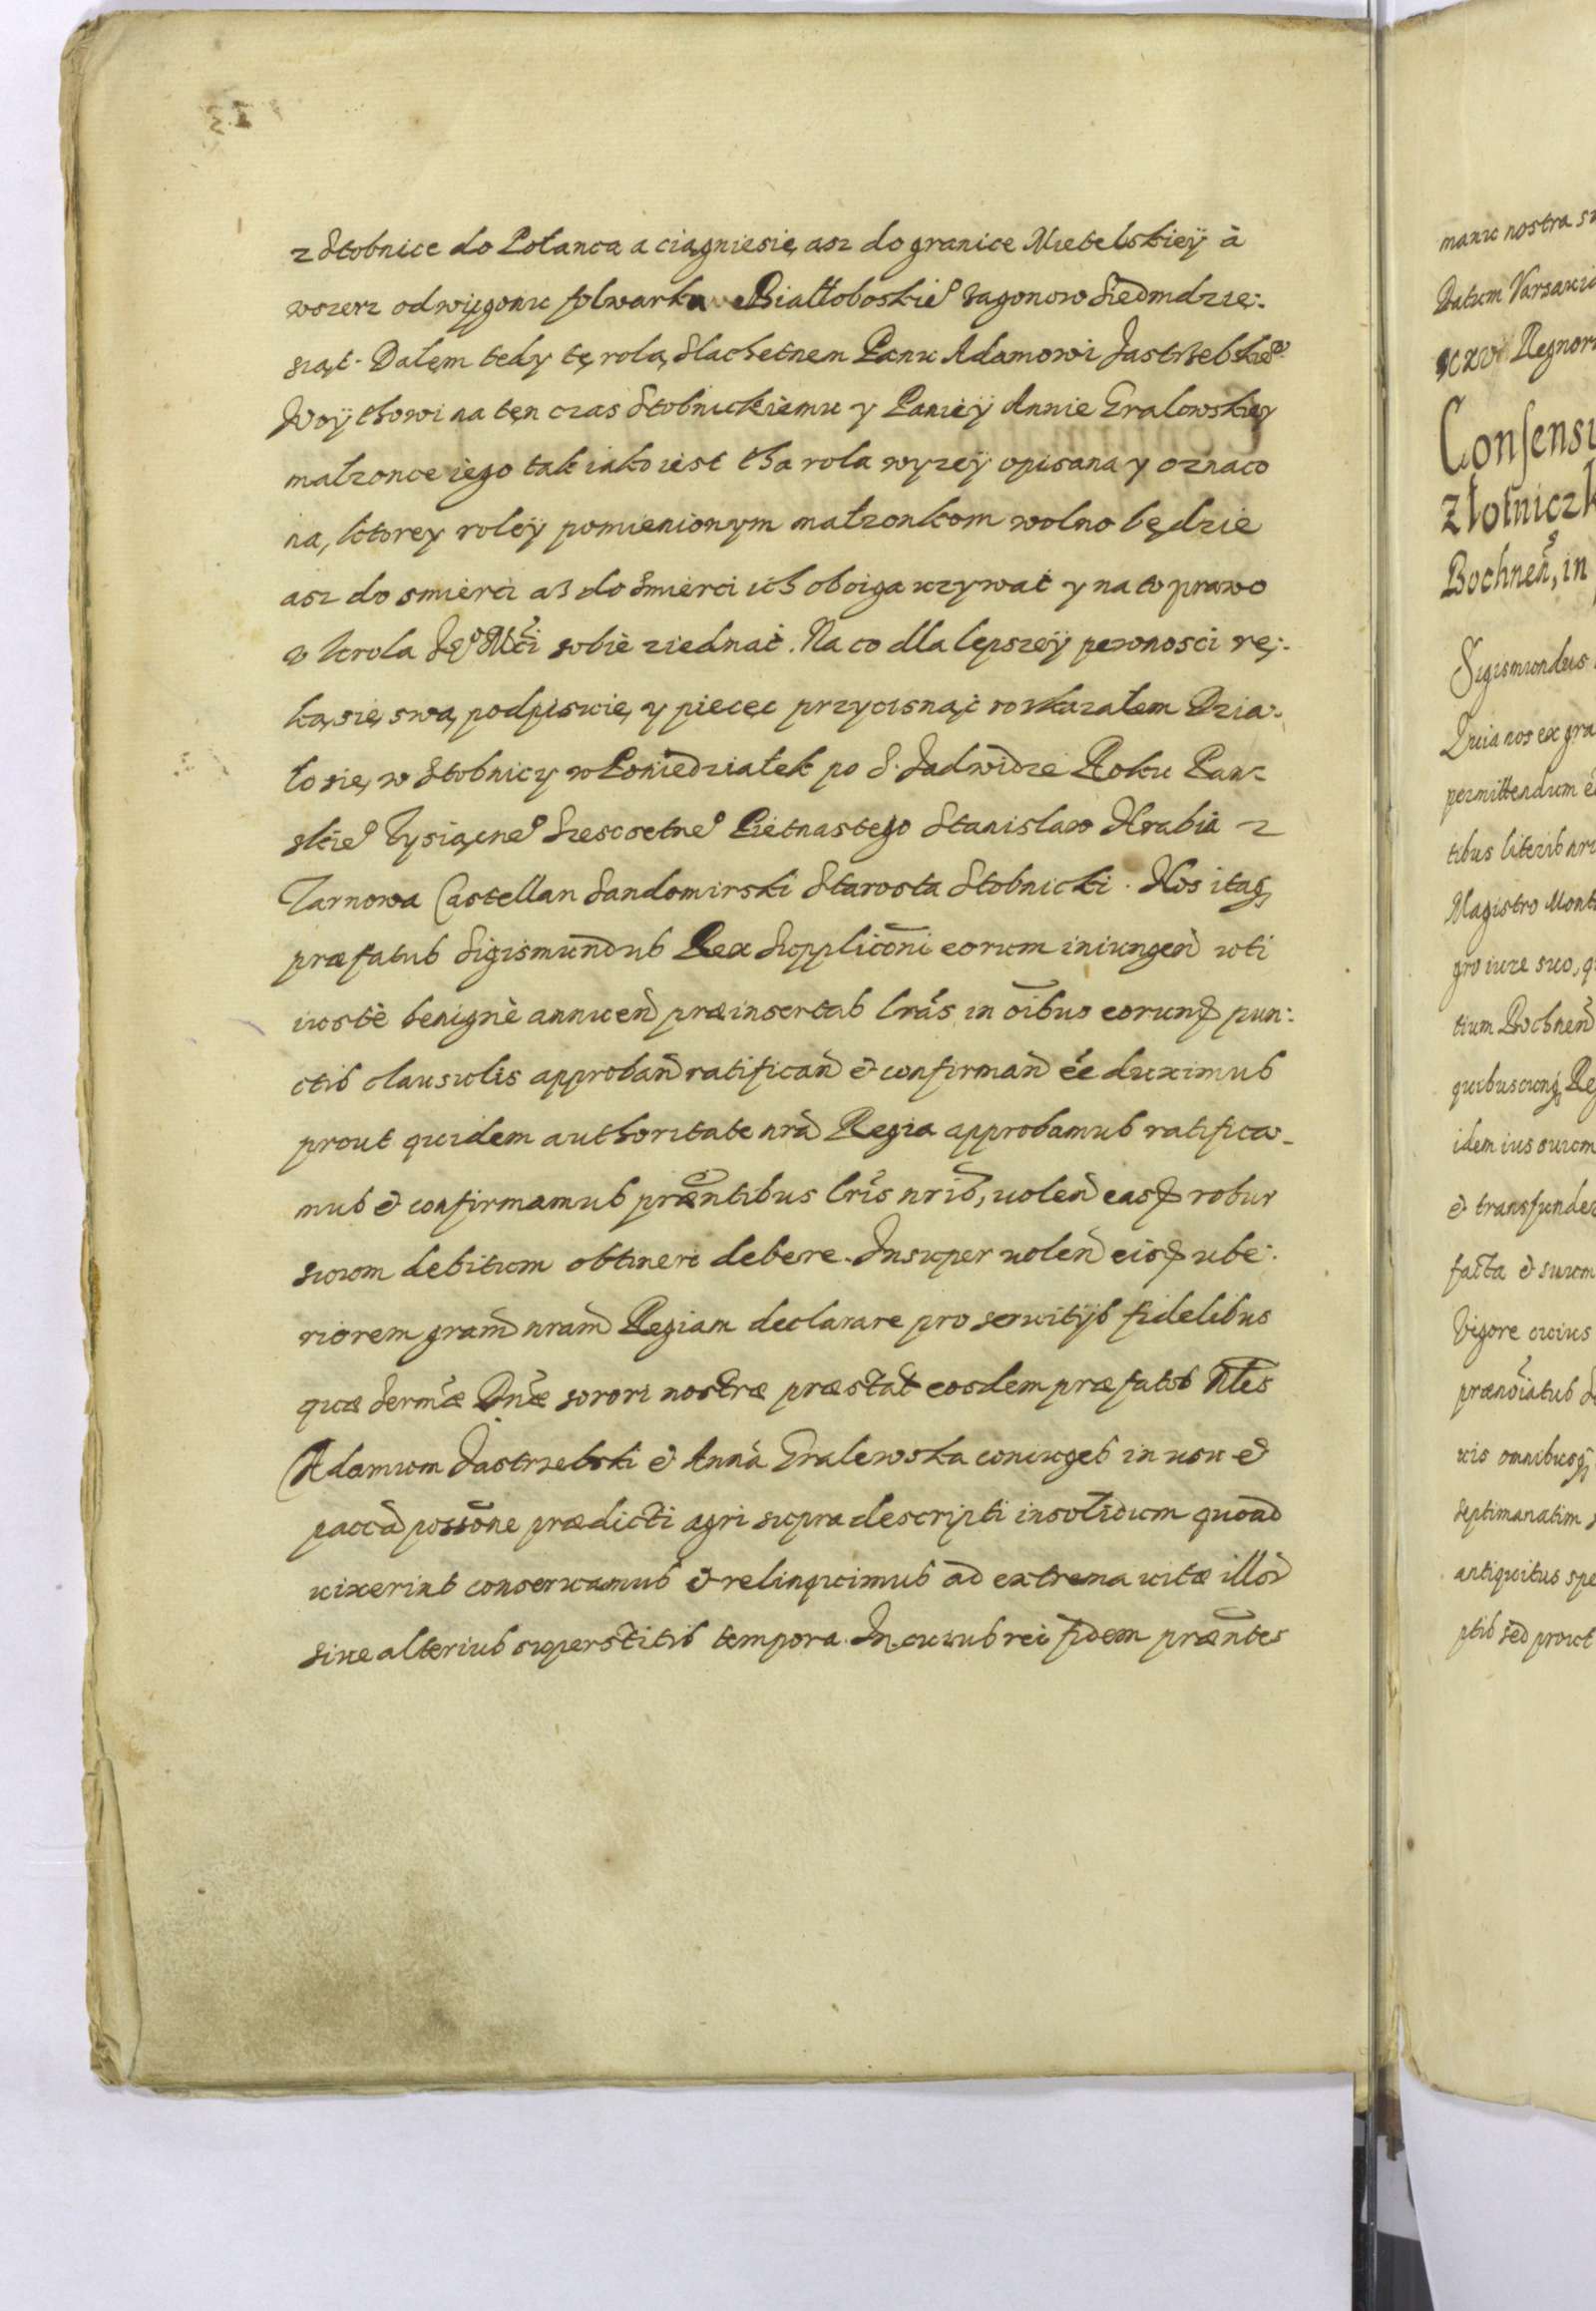 z Stobnice do Połanca a ciągniesię asz do granice Mietelskieÿ à
wszerz od wÿgonu folwarku Białłoboskieº zagonow Siedmdzie:
siąt. Dałem tedy tę rolą Slachetnem Panu Adamowi Jastrzebskieº
Woÿthowi na tęn czas Stobnickiemu y Panieÿ Annie Gralowskiey
małzonce iego tak iako iest tha rola wyzeÿ opisana y oznaco
na, ktorey roleÿ pomienionym małzonkom wolno będzie
asz do smierci aż do smierci ich oboiga uzywać y na to prawo
v krola Jeº Mci sobie ziednać. Na co dla lepszeÿ pewnosci rę:
ką się swą podpisuię y piecęc przycisnąć roskazałem Dzia:
ło się w Stobnicy w Poniedziałek po S. Jadwidze Roku Pan:
skieº Tysiącneº Szescsetneº Pietnastego Stanislaw Hrabia z
Tarnowa Castellan Sandomirski Starosta Stobnicki. Nos itaq
præfatus Sigismundus Rex Supplicōni eorum iniungeñ uti
iustè benignè annueñ præinsertas lrãs in oībus eorund pun:
ctis clausulis approbañ ratificañ & confirmañ ẽe duximus
prout quidem authoritate nrã Regia approbamus ratifica-
mus & confirmamus præntibus lrĩs nrĩs, uoleñ easd robur
suum debitum obtinere debere. Insuper uoleñ eisd ube:
riorem gram nram Regiam declarare pro seruitÿs fidelibus
quæ Sermæ Dnæ sorori nostræ præstat eosdem præfatos Nles
Adamum Jastrzebski & Annã Gralewska coniuges in usu &
pacca possōne prædicti agri supra descripti insolidum quoad
uixerint conseruamus & relinquimus ad extrema uitæ illor
siue alterius superstitis tempora. In cuius rei fidem præntes
manu nostra
Datum Varsauiæ
xxv Regnor
Consensu
złotniczk
Bochneñ, in
Sigismundus
Quia nos ex gra
permittendum
tibus literis nr
Magistro Mont
gro iure suo,
tium Bochneñ
quibuscunq Re
idem ius suum
& transfunde
facta & suum
Vigore cuius
prænoīatus
uis omnibusq
septimanatim
antiquitus spe
ptis sed prout